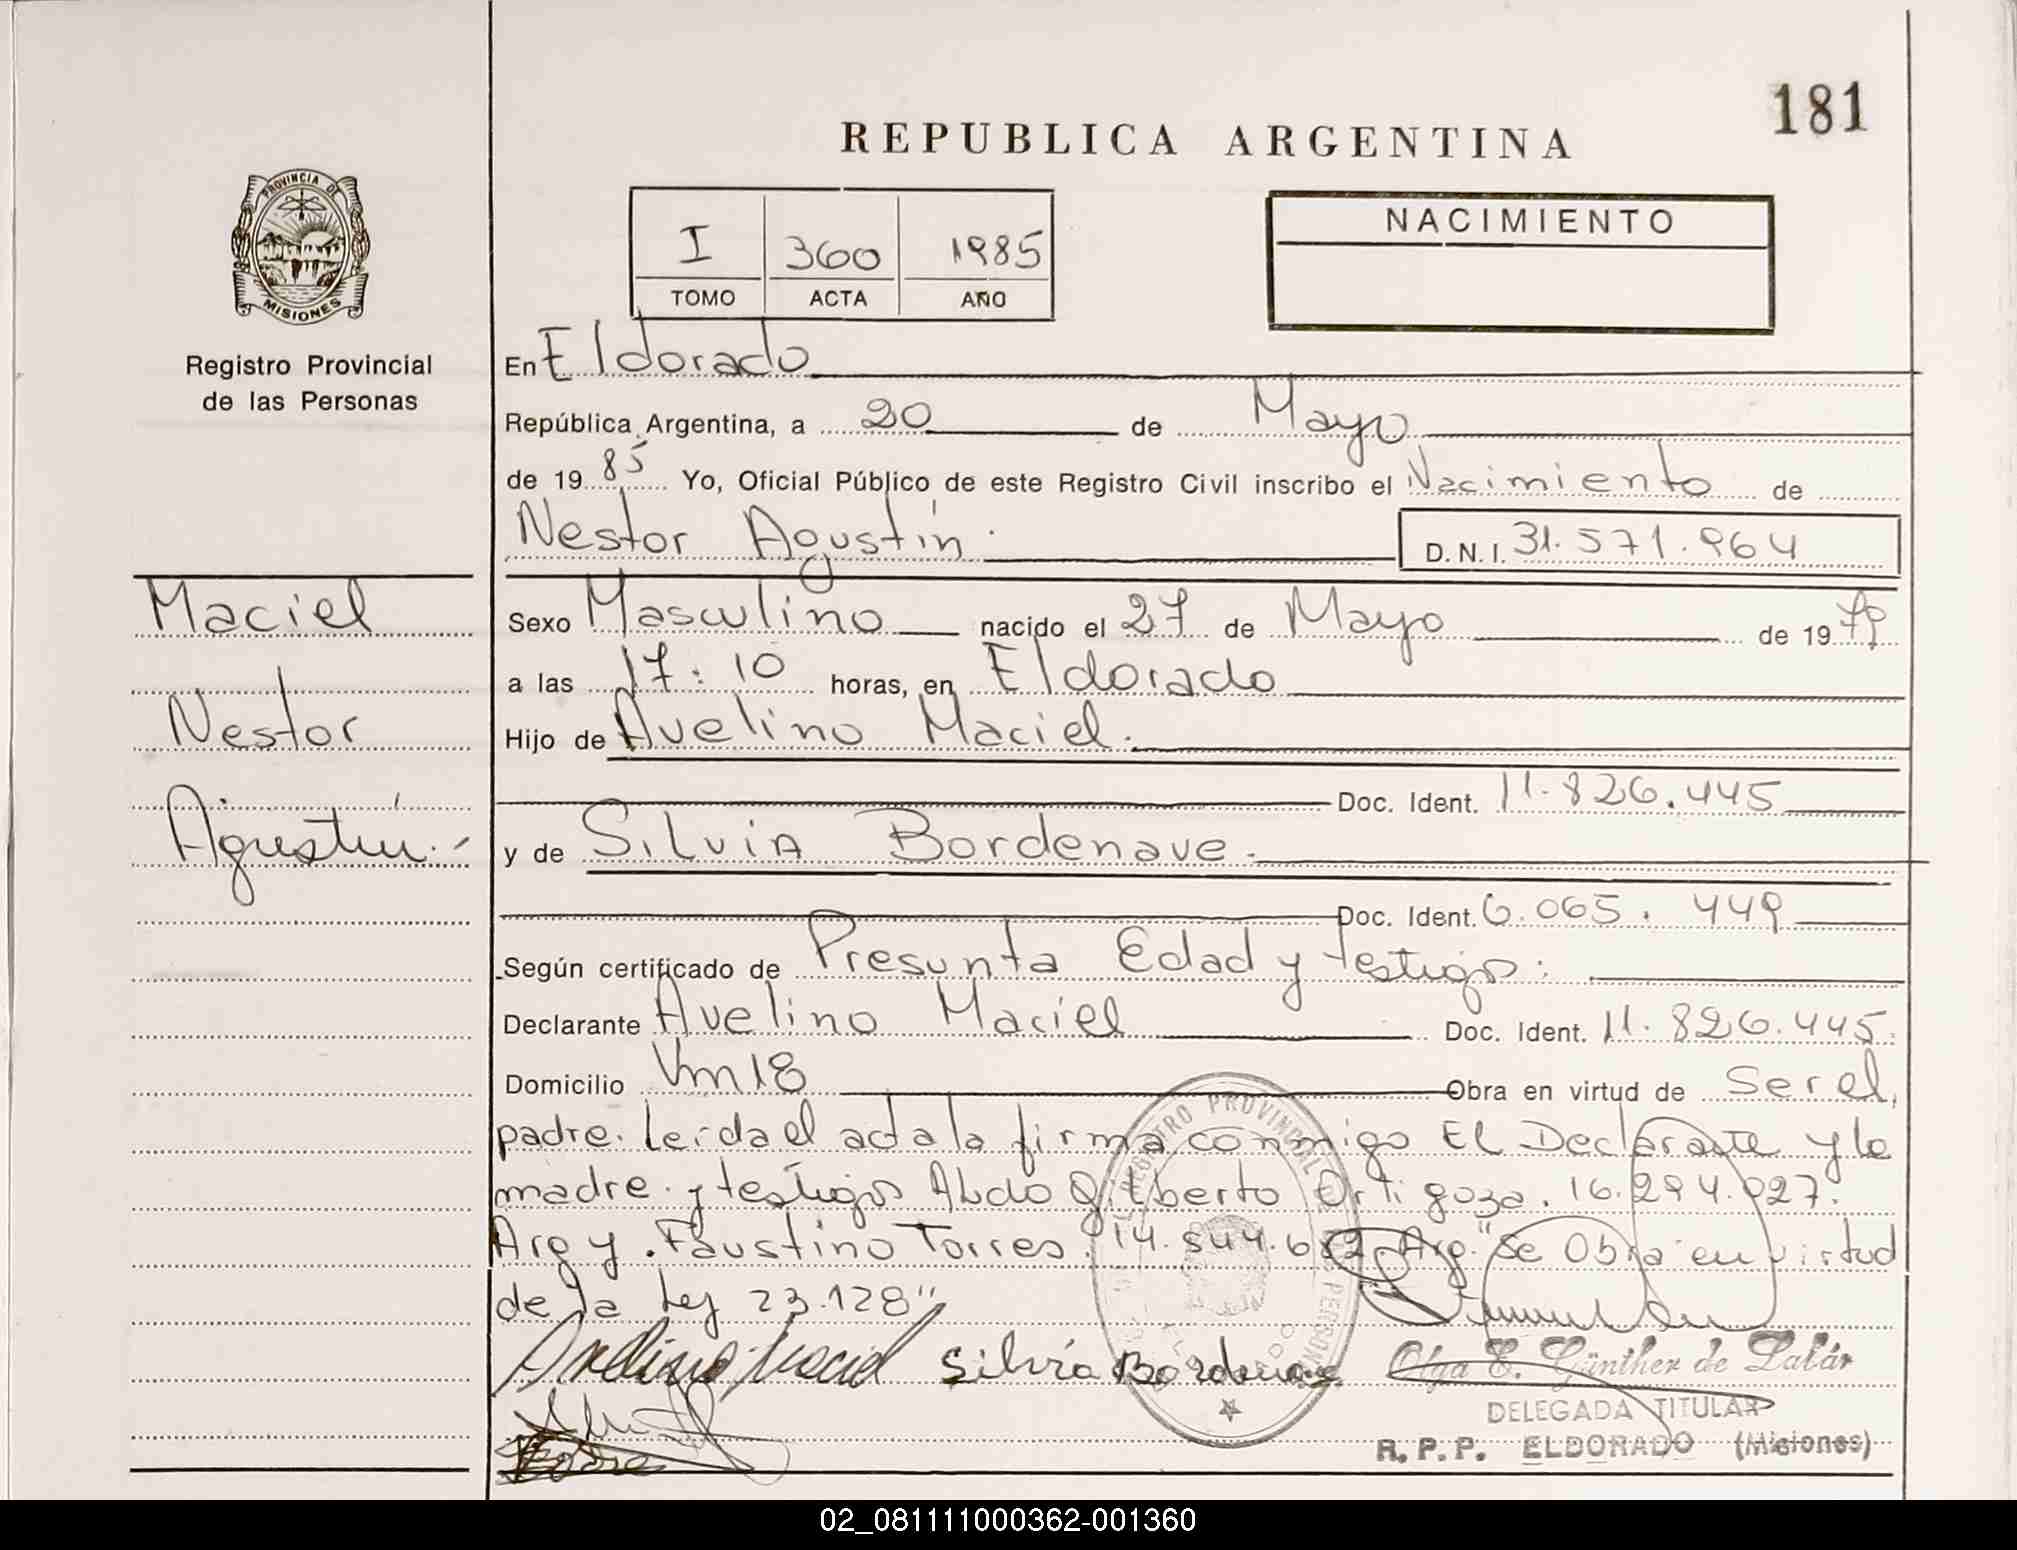 181
REPUBLICA ARGENTINA
PROVINCIA DE
MISIONES
Registro Provincial
de las Personas
I 360 1985
TOMO ACTA AÑO
NACIMIENTO
En Eldorado
República Argentina, a 20 de Mayo
de 19 85 Yo, Oficial Público de este Registro Civil inscribo el Nacimiento de
Nestor Agustín. D.N.I. 31.571.964
Maciel
Nestor
Agustín.-
Sexo Masculino nacido el 27 de Mayo de 1979
a las 17:10 horas, en Eldorado
Hijo de Avelino Maciel.
Doc. Ident. 11.826.445
y de Silvia Bordenave.
Doc. Ident. 6.065.449
Según certificado de Presunta Edad y testigos:
Declarante Avelino Maciel Doc. Ident. 11.826.445.
Domicilio Km18 Obra en virtud de Ser el
padre. Leída el acta la firma conmigo El Declarante y la
madre. y testigos Aldo Gilberto Ortigoza. 16.294.027.
Arg y. Faustino Torres. 14. Arg. "Se Obra en virtud
de la Ley 23.128"
Avelino Maciel Silvia Bordenave
REGISTRO PROVINCIAL DE LAS PERSONAS
Olga E. Günther de Zalár
DELEGADA TITULAR
R.P.P. ELDORADO (Misiones)
02_081111000362-001360